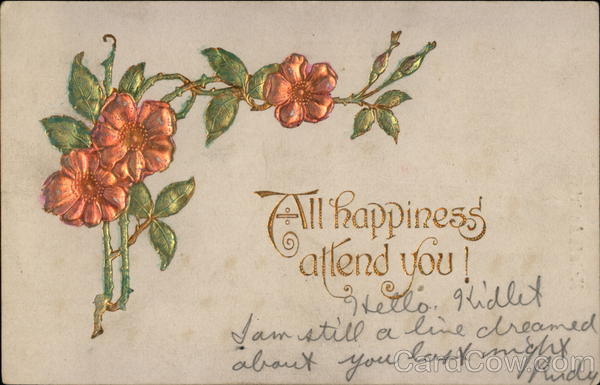 All happiness
attend you!
Hello. Kidlet
I am still a live dreamed
about you last night
CardCow.com